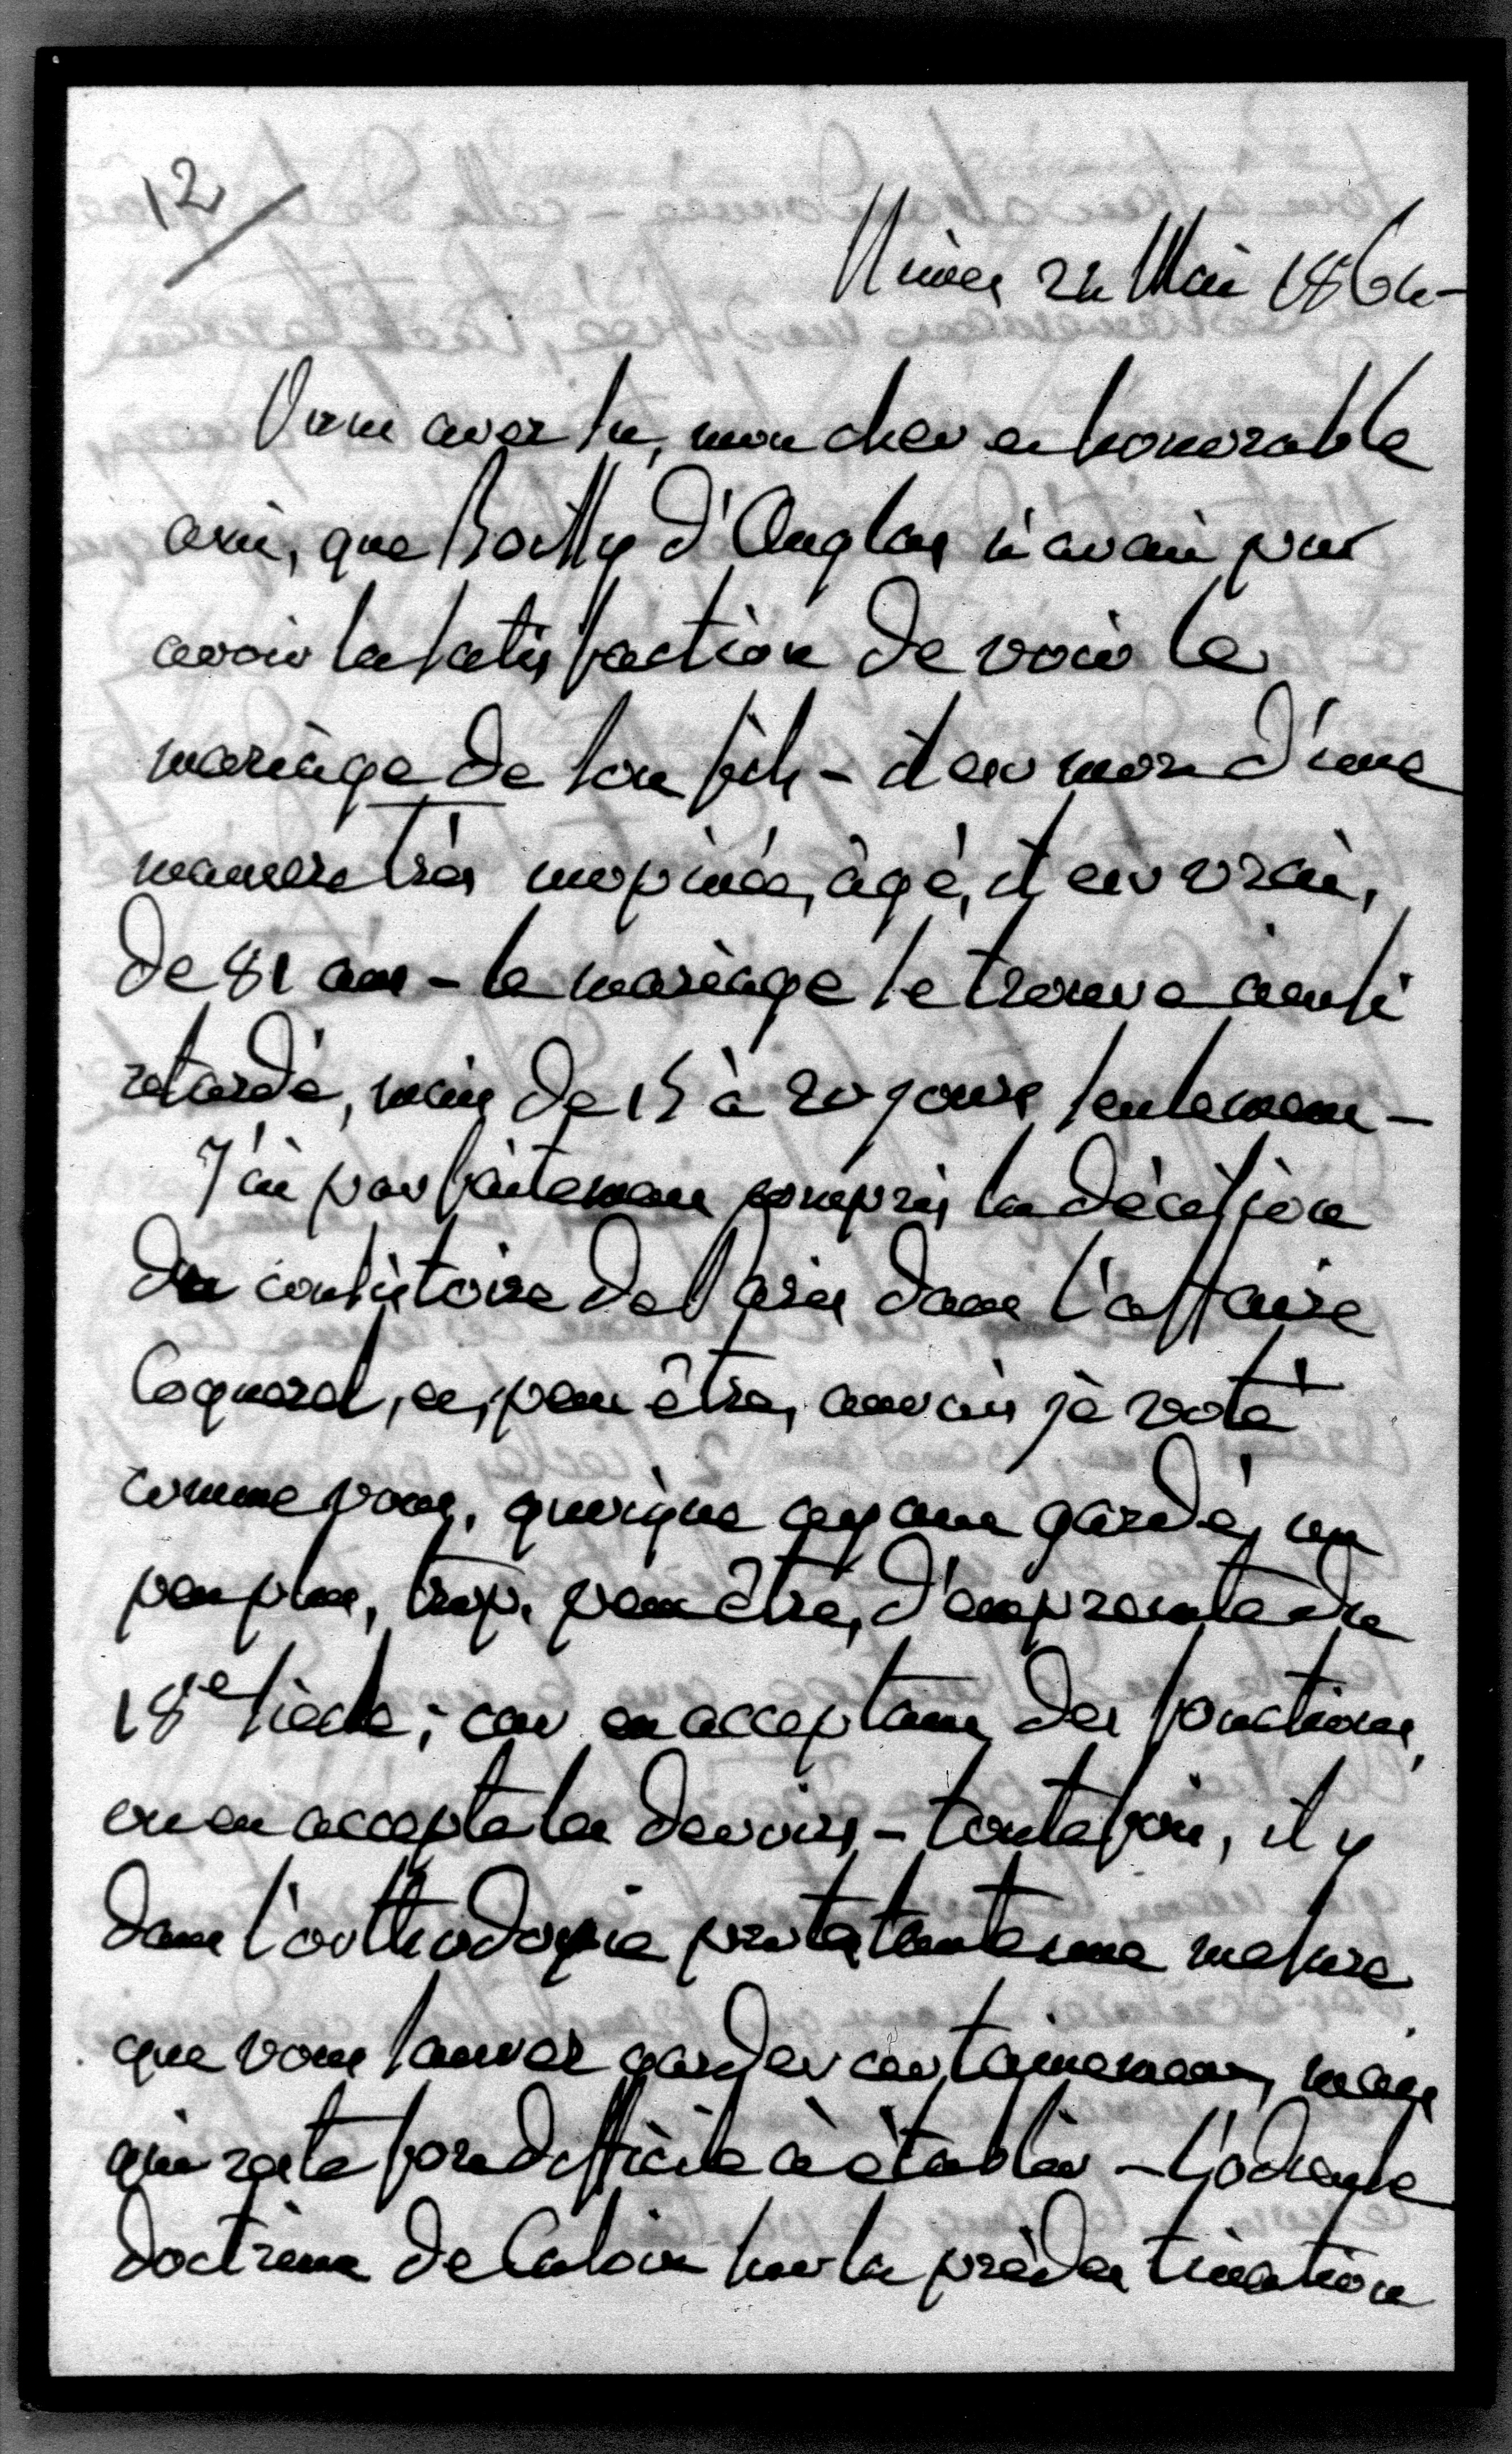 12
Nimes 24 Mai 1864 -
Vous avez lu, mon cher et honorable
ami, que Boissy d'Anglas n'avait pu
avoir la satisfaction de voir le
mariage de son fils - il est mort d'une
maniere très inopinée, âgé, il est vrai,
de 81 ans - le mariage se trouve ainsi
retardé, mais de 15 à 20 jours seulement -
J'ai parfaitement compris la décision
du consistoire de Paris dans l'affaire
Coquerel, et, peut être, aurais je voté
comme vous, quoique ayant gardé, un
peu plus, trop, peut être, d'empreinte du
18e siècle; car en acceptant des fonctions,
on en accepte les devoirs - toutefois, il y
dans l'orthodoxie protestante une mesure
que vous saurez garder certainement, mais
qui reste fort difficile à établir - L'odieuse
doctrine de Calvin sur la prédestination